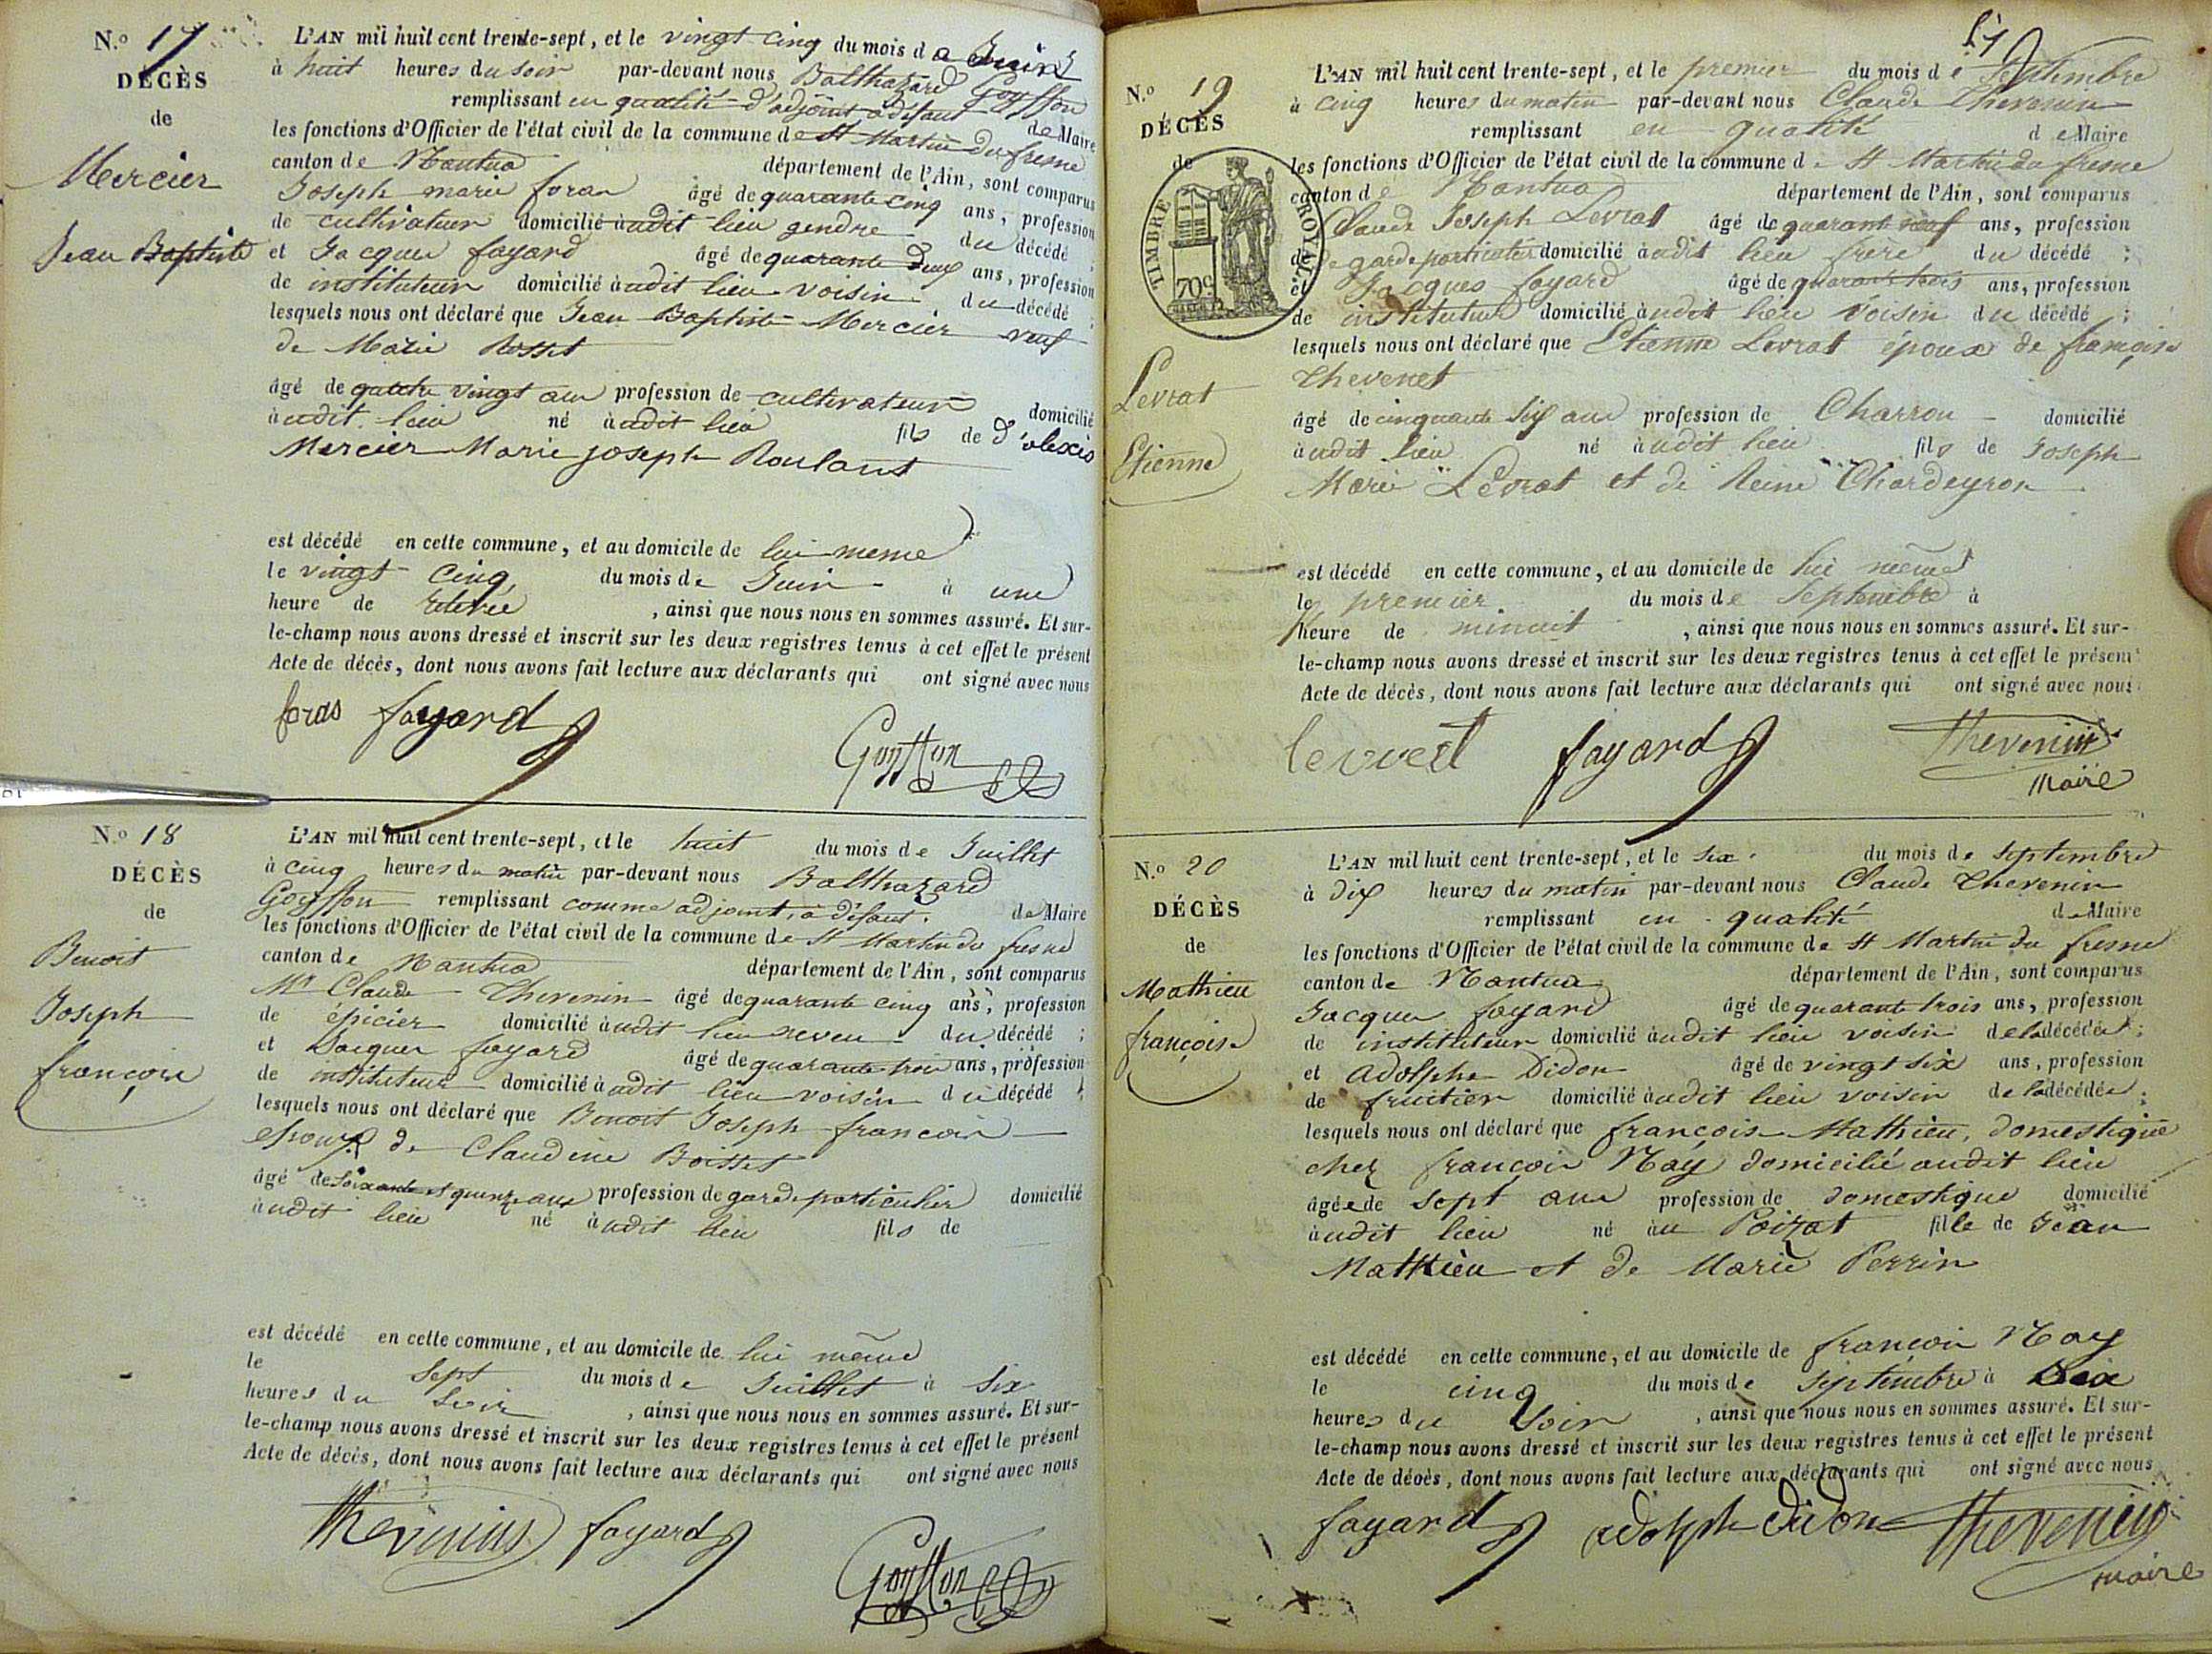 N.o 17
DÉCÈS
de
Mercier
Jean Baptiste
L'AN mil huit cent trente-sept, et le vingt cinq du mois de Juin
à huit heures du soir par-devant nous Balthazard Goyffon
remplissant en qualité d'adjoint à défaut de Maire
les fonctions d'Officier de l'état civil de la commune de St Martin du fresne
canton de Nantua département de l'Ain, sont comparus
Joseph marie foras âgé de quarante cinq ans, profession
de cultivateur domicilié audit lieu gendre du décédé ;
et Jacques fayard âgé de quarante deux ans, profession
de instituteur domicilié audit lieu voisin du décédé ;
lesquels nous ont déclaré que Jean Baptiste Mercier veuf
de Marie Rosset
âgé de quatre vingt ans profession de cultivateur domicilié
audit lieu né audit lieu fils de d'alexis
Mercier Marie joseph Roulant
est décédé en cette commune, et au domicile de lui meme
le vingt cinq du mois de Juin à une
heure de relevée , ainsi que nous nous en sommes assuré. Et sur-
le-champ nous avons dressé et inscrit sur les deux registres tenus à cet effet le présent
Acte de décès, dont nous avons fait lecture aux déclarants qui ont signé avec nous
foras fayard Goyffon
N.o 18
DÉCÈS
de
Benoit
Joseph
françois
L'AN mil huit cent trente-sept, et le huit du mois de Juillet
à cinq heures du matin par-devant nous Balthazard
Goyffon remplissant comme adjoint, à défaut. de Maire
les fonctions d'Officier de l'état civil de la commune de St Martin du fresne
canton de Nantua département de l'Ain, sont comparus
Mr Claude Thevenin âgé de quarante cinq ans, profession
de épicier domicilié audit lieu neveu du décédé ;
et Jacques fayard âgé de quarante trois ans, profession
de instituteur domicilié audit lieu voisin du décédé ;
lesquels nous ont déclaré que Benoit Joseph francois
epoux de Claudine Boisset
âgé de soixante et quinze ans profession de garde particulier domicilié
audit lieu né audit lieu fils de
est décédé en cette commune, et au domicile de lui même
le sept du mois de Juillet à six
heures du soir , ainsi que nous nous en sommes assuré. Et sur-
le-champ nous avons dressé et inscrit sur les deux registres tenus à cet effet le présent
Acte de décès, dont nous avons fait lecture aux déclarants qui ont signé avec nous
Thevenin fayard Goyffon
N.o 19
DÉCÈS
de
TIMBRE ROYAL
70c
Levrat
Etienne
L'AN mil huit cent trente-sept, et le premier du mois de Septembre
à cinq heures du matin par-devant nous Claude Thevenin
remplissant en qualité de Maire
les fonctions d'Officier de l'état civil de la commune de St Martin du fresne
canton de Nantua département de l'Ain, sont comparus
Claude Joseph Levrat âgé de quarante neuf ans, profession
de garde particulier domicilié audit lieu frère du décédé ;
et Jacques fayard âgé de quarante trois ans, profession
de instituteur domicilié audit lieu voisin du décédé ;
lesquels nous ont déclaré que Etienne Levrat époux de françoise
Thevenet
âgé de cinquante six ans profession de Charron domicilié
audit lieu né audit lieu fils de Joseph
Marie Levrat et de Reine Chardeyron
est décédé en cette commune, et au domicile de lui même
le premier du mois de Septembre à
heure de minuit , ainsi que nous nous en sommes assuré. Et sur-
le-champ nous avons dressé et inscrit sur les deux registres tenus à cet effet le présent
Acte de décès, dont nous avons fait lecture aux déclarants qui ont signé avec nous
fayard Thevenin
Maire
N.o 20
DÉCÈS
de
Mathieu
françoise
L'AN mil huit cent trente-sept, et le six du mois de septembre
à dix heures du matin par-devant nous Claude Thevenin
remplissant en qualité de Maire
les fonctions d'Officier de l'état civil de la commune de St Martin du fresne
canton de Nantua département de l'Ain, sont comparus
Jacques fayard âgé de quarante trois ans, profession
de instituteur domicilié audit lieu voisin de la décédée ;
et adolphe Didon âgé de vingt six ans, profession
de fruitier domicilié audit lieu voisin de la décédée ;
lesquels nous ont déclaré que françoise Mathieu, domestique
chez francois Nay domicilié audit lieu
âgée de sept ans profession de domestique domicilié
audit lieu né au Poizat fille de Jean
Mathieu et de Marie Perrin
est décédé en cette commune, et au domicile de francois Nay
le cinq du mois de septembre à Six
heures du soir , ainsi que nous nous en sommes assuré. Et sur-
le-champ nous avons dressé et inscrit sur les deux registres tenus à cet effet le présent
Acte de décès, dont nous avons fait lecture aux déclarants qui ont signé avec nous
fayard adolph didon Thevenin
maire